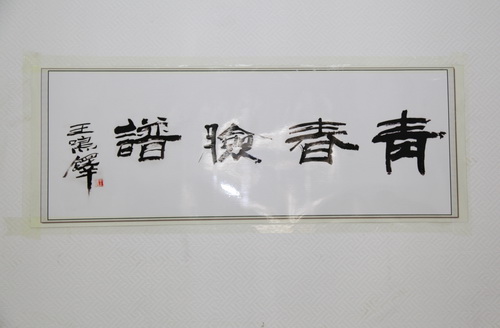 青春臉譜
王鳴鐸